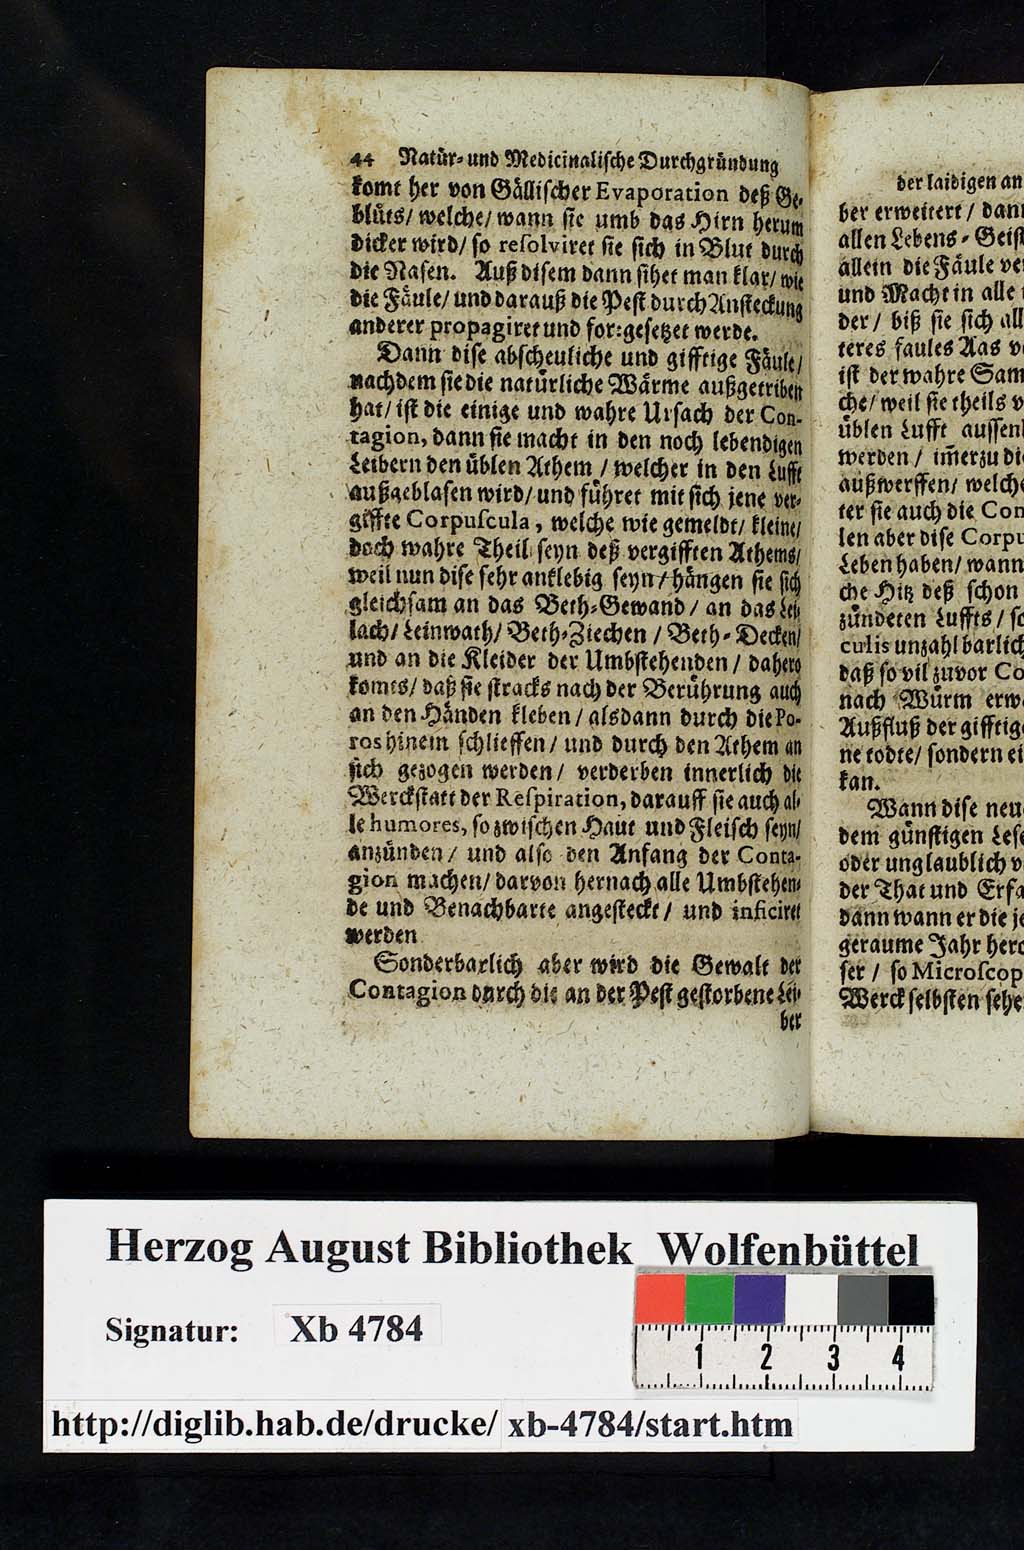 44 Natür- und Medicinalische Durchgründung
komt her von Gällischer Evaporation deß Ge-
blüts/ welche/ wann sie umb das Hirn herum
dicker wird/ so resolviret sie sich in Blut durch
die Nasen. Auß disem dann sihet man klar/ wie
die Fäule/ und darauß die Pest durch Ansteckung
anderer propagiret und fortgesetzet werde.
Dann dise abscheuliche und gifftige Fäule/
nachdem sie die natürliche Wärme außgetriben
hat/ ist die einige und wahre Ursach der Con-
tagion, dann sie macht in den noch lebendigen
Leibern den üblen Athem / welcher in den Lufft
außgeblasen wird/ und führet mit sich jene ver-
giffte Corpuscula, welche wie gemeldt/ kleine/
doch wahre Theil seyn deß vergifften Athems/
weil nun dise sehr anklebig seyn/ hängen sie sich
gleichsam an das Beth-Gewand / an das Lei-
lach/ Leinwath/ Beth-Ziechen / Beth-Decken/
und an die Kleider der Umbstehenden / dahero
komts/ daß sie stracks nach der Berührung auch
an den Händen kleben/ alsdann durch die Po-
ros hinein schlieffen/ und durch den Athem an
sich gezogen werden/ verderben innerlich die
Werckstatt der Respiration, darauff sie auch al-
le humores, so zwischen Haut und Fleisch seyn/
anzünden / und also den Anfang der Conta-
gion machen/ darvon hernach alle Umbstehen-
de und Benachbarte angesteckt/ und inficiret
werden
Sonderbarlich aber wird die Gewalt der
Contagion durch die an der Pest gestorbene Lei-
ber
der laidigen an
ber erweitert / dann
allen Lebens-Geist
allein die Fäule ver
und Macht in alle
der / biß sie sich all
teres faules Aas v
ist der wahre Sam
che/ weil sie theils v
üblen Lufft aussen
werden / im̃erzu di
außwerffen/ welche
ter sie auch die Con
len aber dise Corpu
Leben haben/ wann
che Hitz deß schon
zündeten Luffts / so
culis unzahlbarlich
daß so vil zuvor Co
nach Würm erw
Außfluß der gifftig
ne todte/ sondern ei
kan.
Wann dise neu
dem günstigen Lese
oder unglaublich v
der That und Erfa
dann wann er die je
geraume Jahr hero
ser / so Microscop
Werck selbsten sehe
Herzog August Bibliothek Wolfenbüttel
Signatur: Xb 4784
1 2 3 4
http://diglib.hab.de/drucke/ xb-4784/start.htm